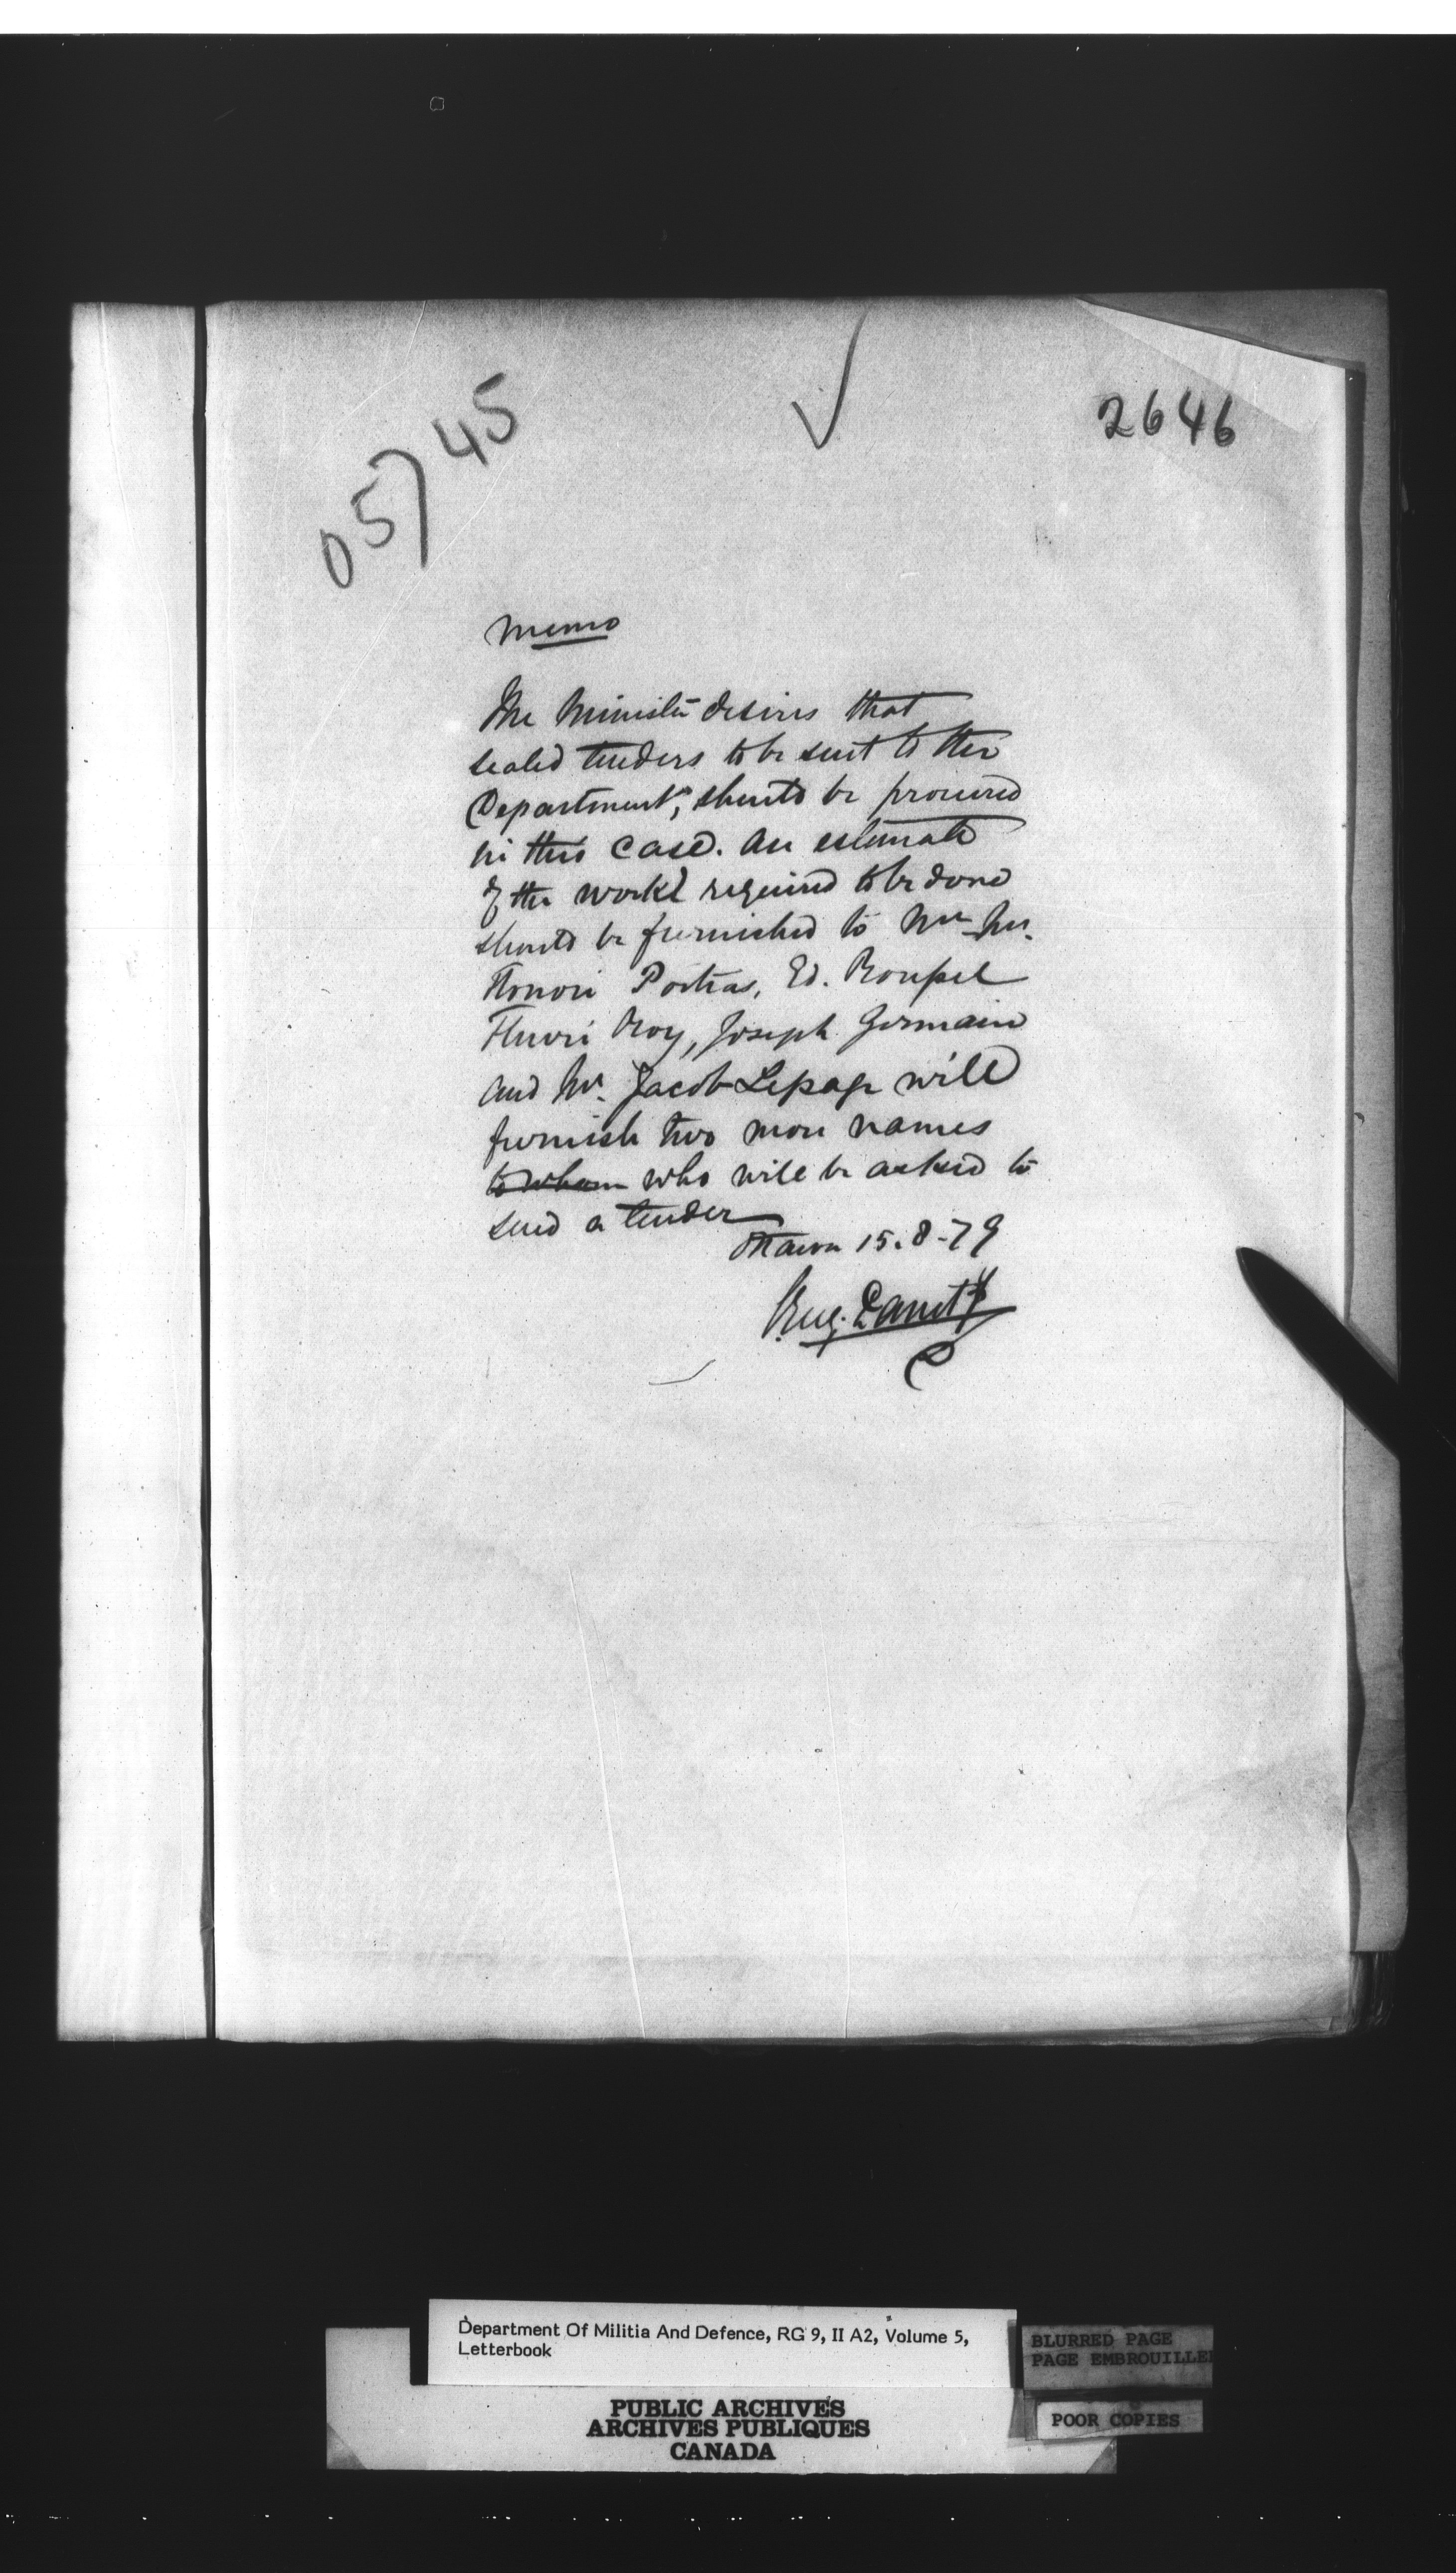 05745
2646
Memo
The Minister desires that
sealed tenders to be sent to the
Department, should be procured
in this case. An estimate
of the work required to be done
should be furnished to
Honoré Poitras, Ed.
Henri Roy, Joseph Germain
and Mr. Jacob Lepage will
furnish two more names
to whom who will be asked to
send a tender
Ottawa 15.8-79
Eug. Panet
Department Of Militia And Defence, RG 9, II A2, Volume 5,
Letterbook
BLURRED PAGE
PAGE EMBROUILLEE
POOR COPIES
PUBLIC ARCHIVES
ARCHIVES PUBLIQUES
CANADA